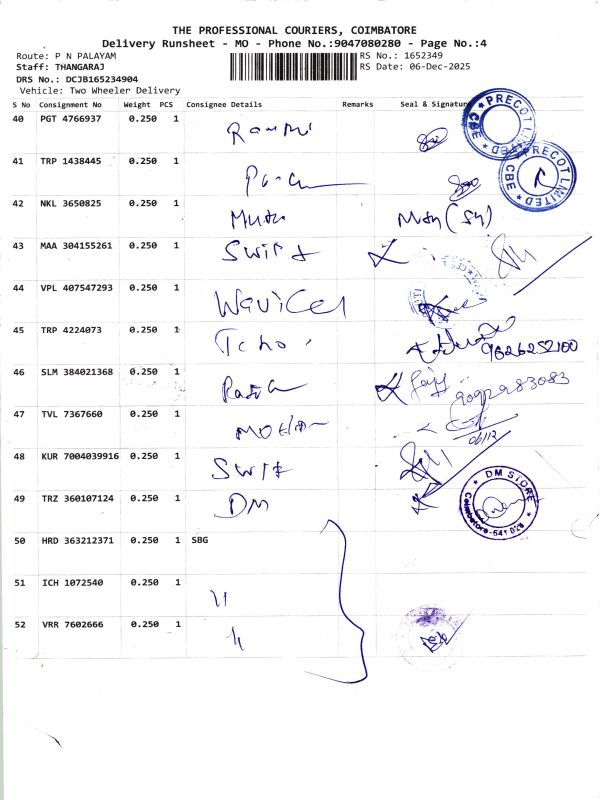 THE PROFESSIONAL COURIERS, COIMBATORE
Delivery Runsheet - MO - Phone No.:9047080280 - Page No.:4
Route: P N PALAYAM RS No.: 1652349
Staff: THANGARAJ RS Date: 06-Dec-2025
DRS No.: DCJB165234904
Vehicle: Two Wheeler Delivery
S No Consignment No Weight PCS Consignee Details Remarks Seal & Signature
40 PGT 4766937 0.250 1
PRECOT LIMITED CBE
41 TRP 1438445 0.250 1
PRECOT LIMITED CBE
42 NKL 3650825 0.250 1
43 MAA 304155261 0.250 1 Swift
44 VPL 407547293 0.250 1
45 TRP 4224073 0.250 1
9626252100
46 SLM 384021368 0.250 1
9092983083
47 TVL 7367660 0.250 1
06/12
48 KUR 7004039916 0.250 1 Swift
49 TRZ 360107124 0.250 1 DM
DM STORE Coimbatore-641028
50 HRD 363212371 0.250 1 SBG
51 ICH 1072540 0.250 1 "
52 VRR 7602666 0.250 1 "